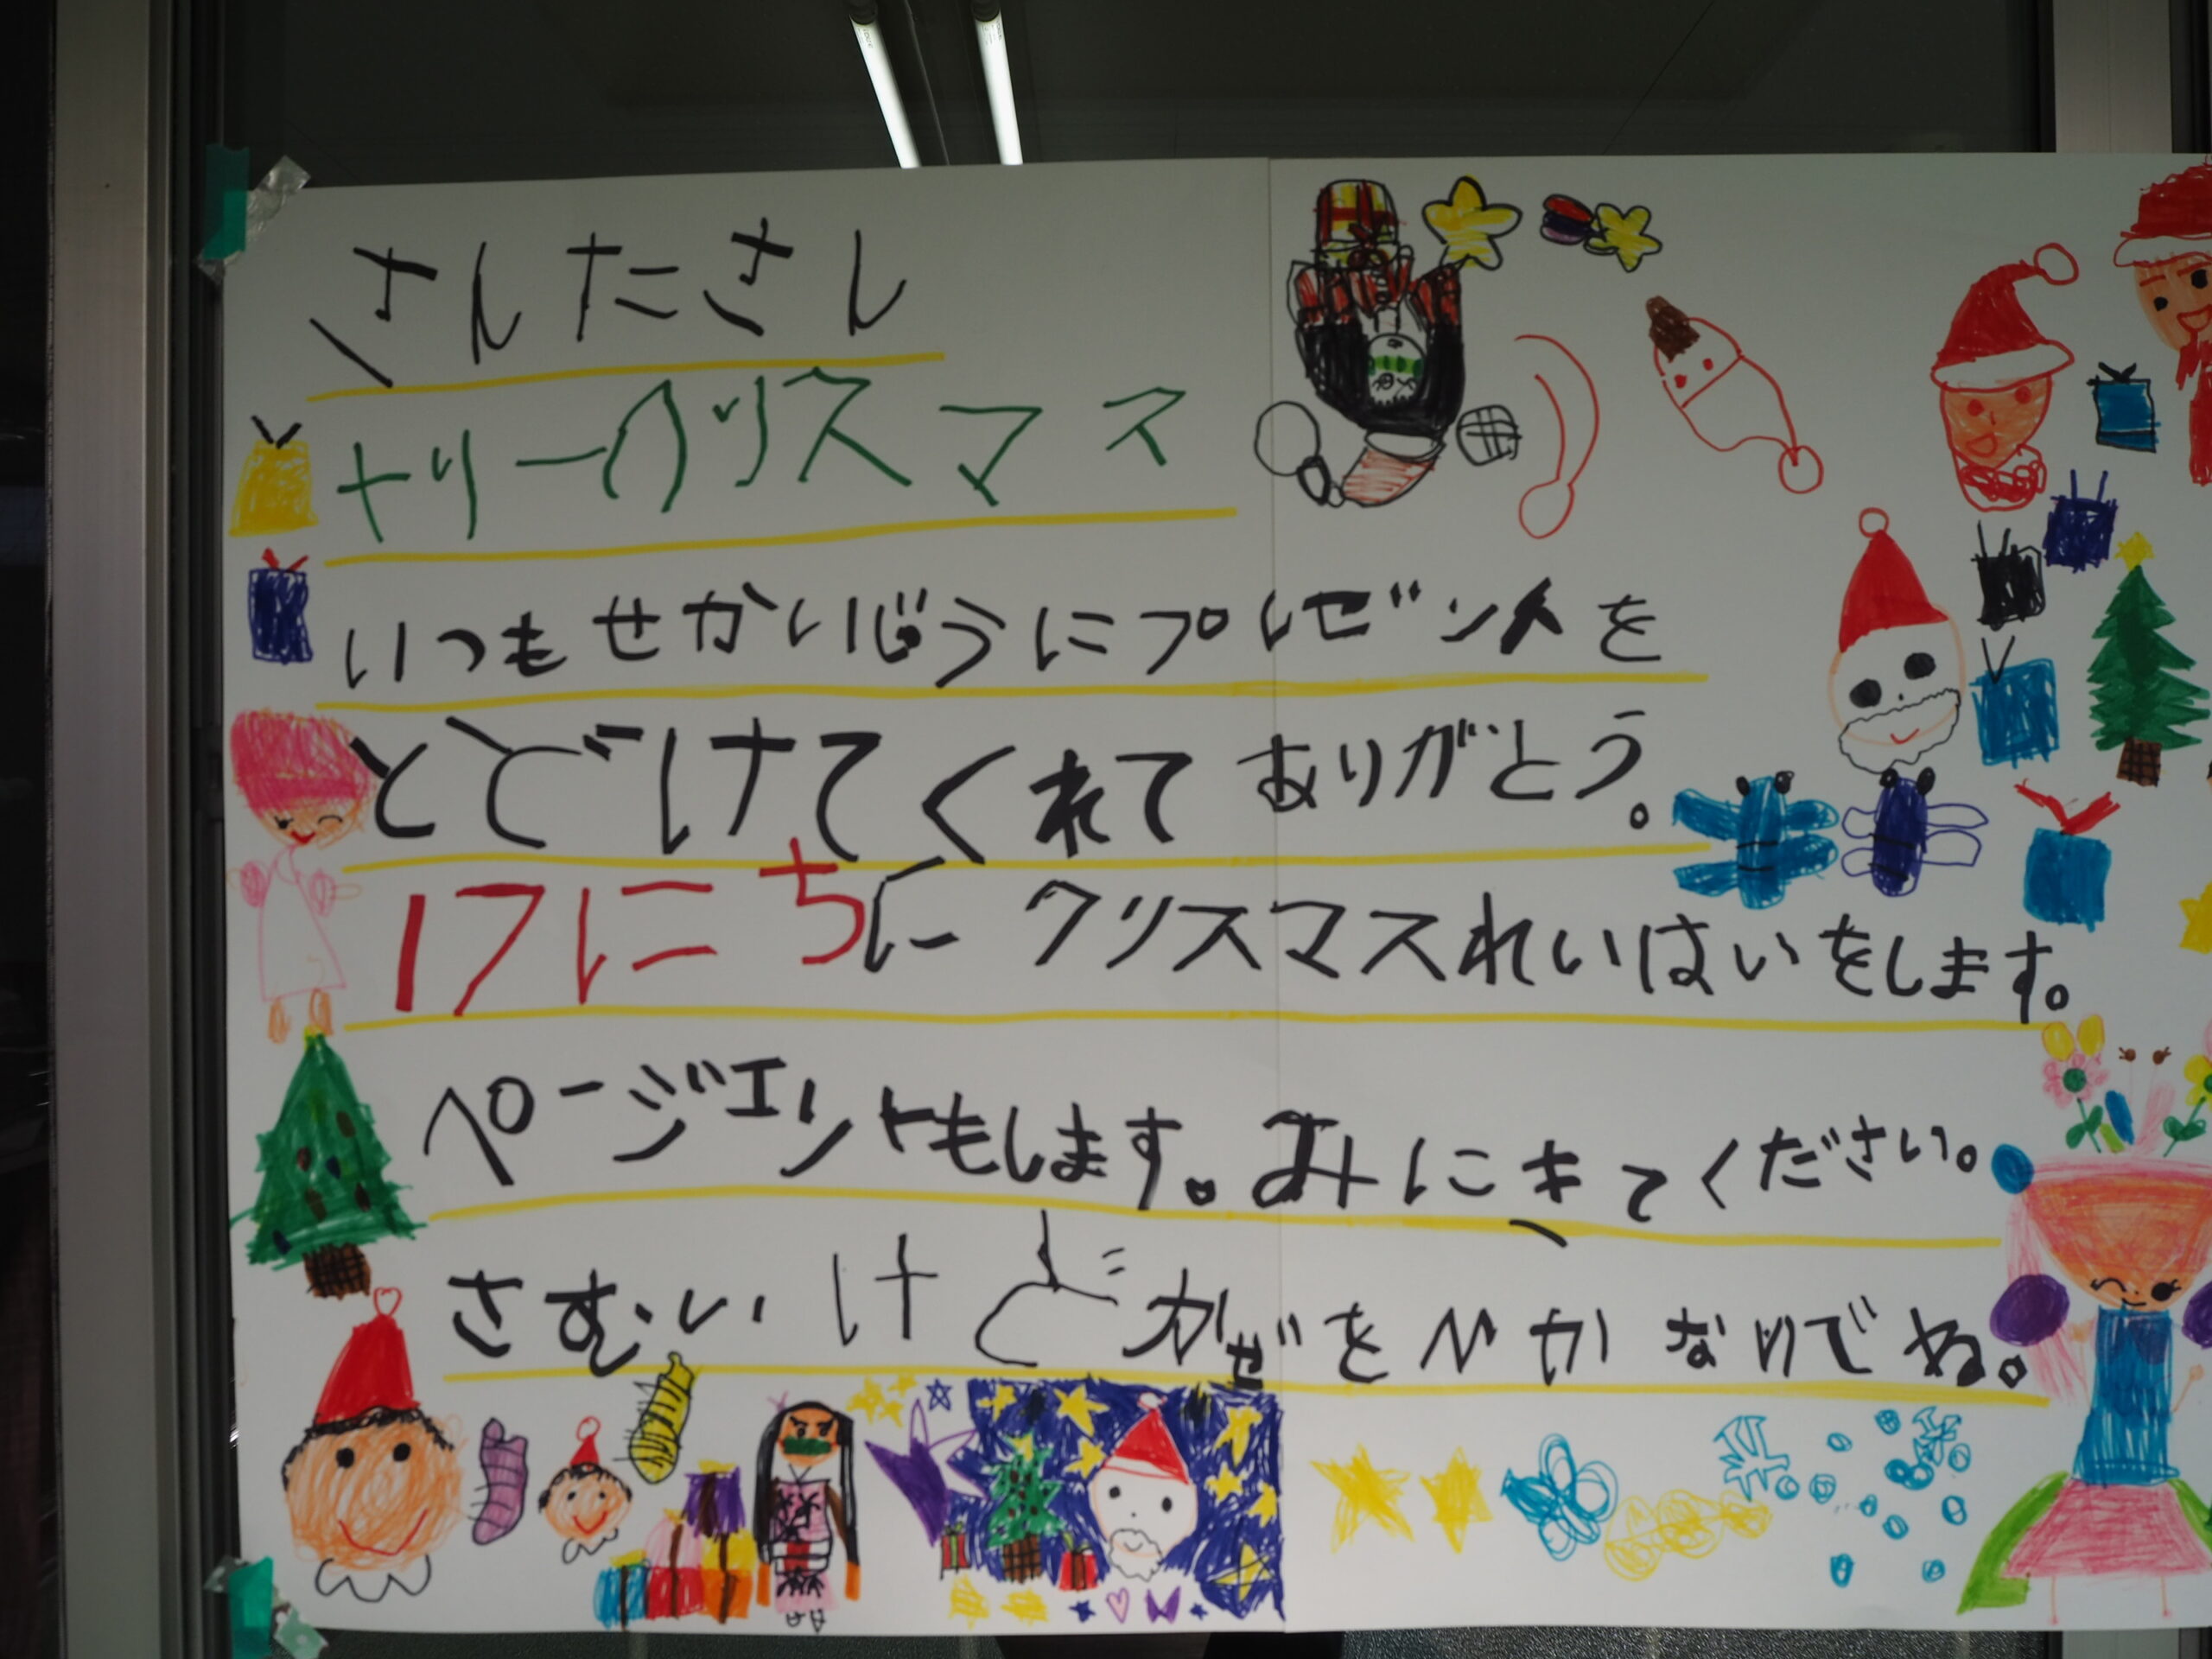 さんたさん
メリークリスマス
いつもせかいじうにプレゼントを
とどけてくれてありがとう。
17にちに クリスマスれいはいをします。
ページェントもします。みにきてください。
さむいけどかぜをひかないでね。